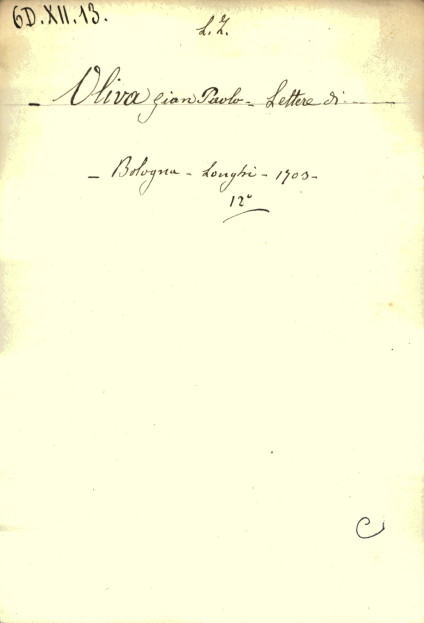 6D.XII.13.
L.Z.
_ Oliva Gian Paolo = Lettere di
_ Bologna - Longhi - 1703 -
12º
C